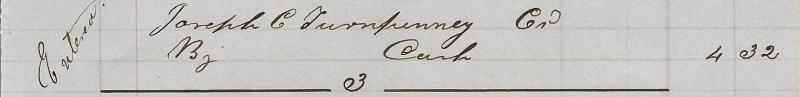 Entered
Joseph C Turnpenney Cr
By Cash 4 32
3